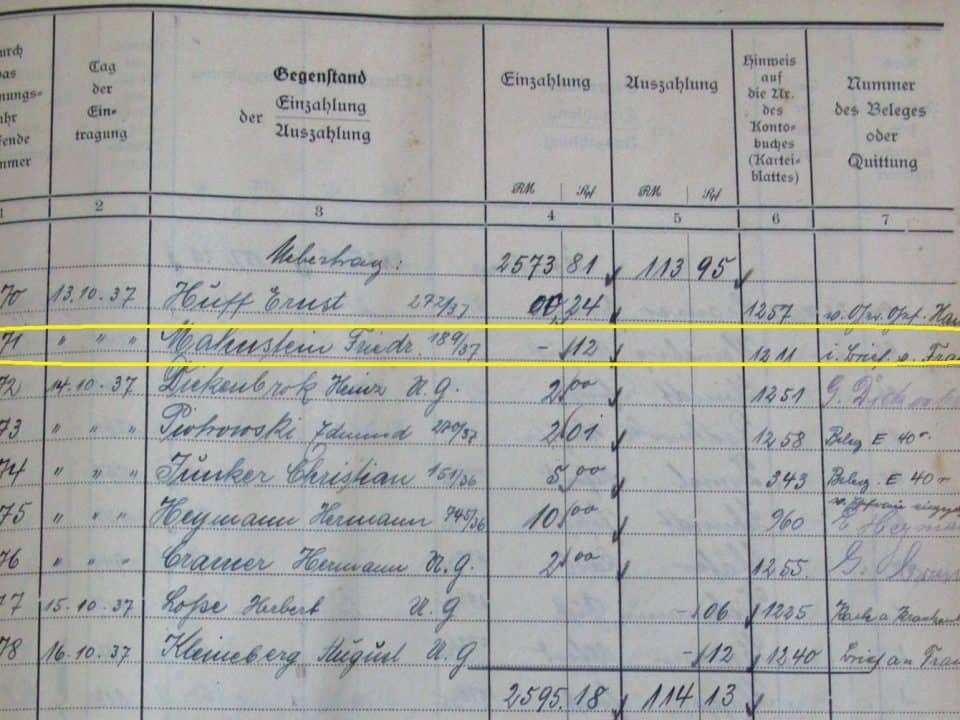 Tag der Ein- tragung
Gegenstand der Einzahlung Auszahlung
Einzahlung
Auszahlung
Hinweis auf die Nr. des Konto- buches (Kartei- blattes)
Nummer des Beleges oder Quittung
RM Rpf RM Rpf
1 2 3 4 5 6 7
Uebertrag: 2573 81 113 95
70 13.10.37 Huff Ernst 272/37 00,24 1257
71 " " " Mahnstein Friedr. 189/37 - 12 1211 i. Brief. a. Frau
72 14.10.37 Dickenbrok Heinz U.g. 2,00 1251
73 " " " Piotrowski Edmund 270/37 2,01 1258 Beleg E 40
74 " " " Junker Christian 151/36 5,00 343 Beleg. E 40
75 " " " Heymann Hermann 745/36 10,00 960
76 " " " Cramer Hermann U.g. 2,00 1255. G.
77 15.10.37 Loße Herbert U.g - 06 1225
78 16.10.37 Kleineberg August U.g - 12 1240 Brief an Frau
2595.18 114 13